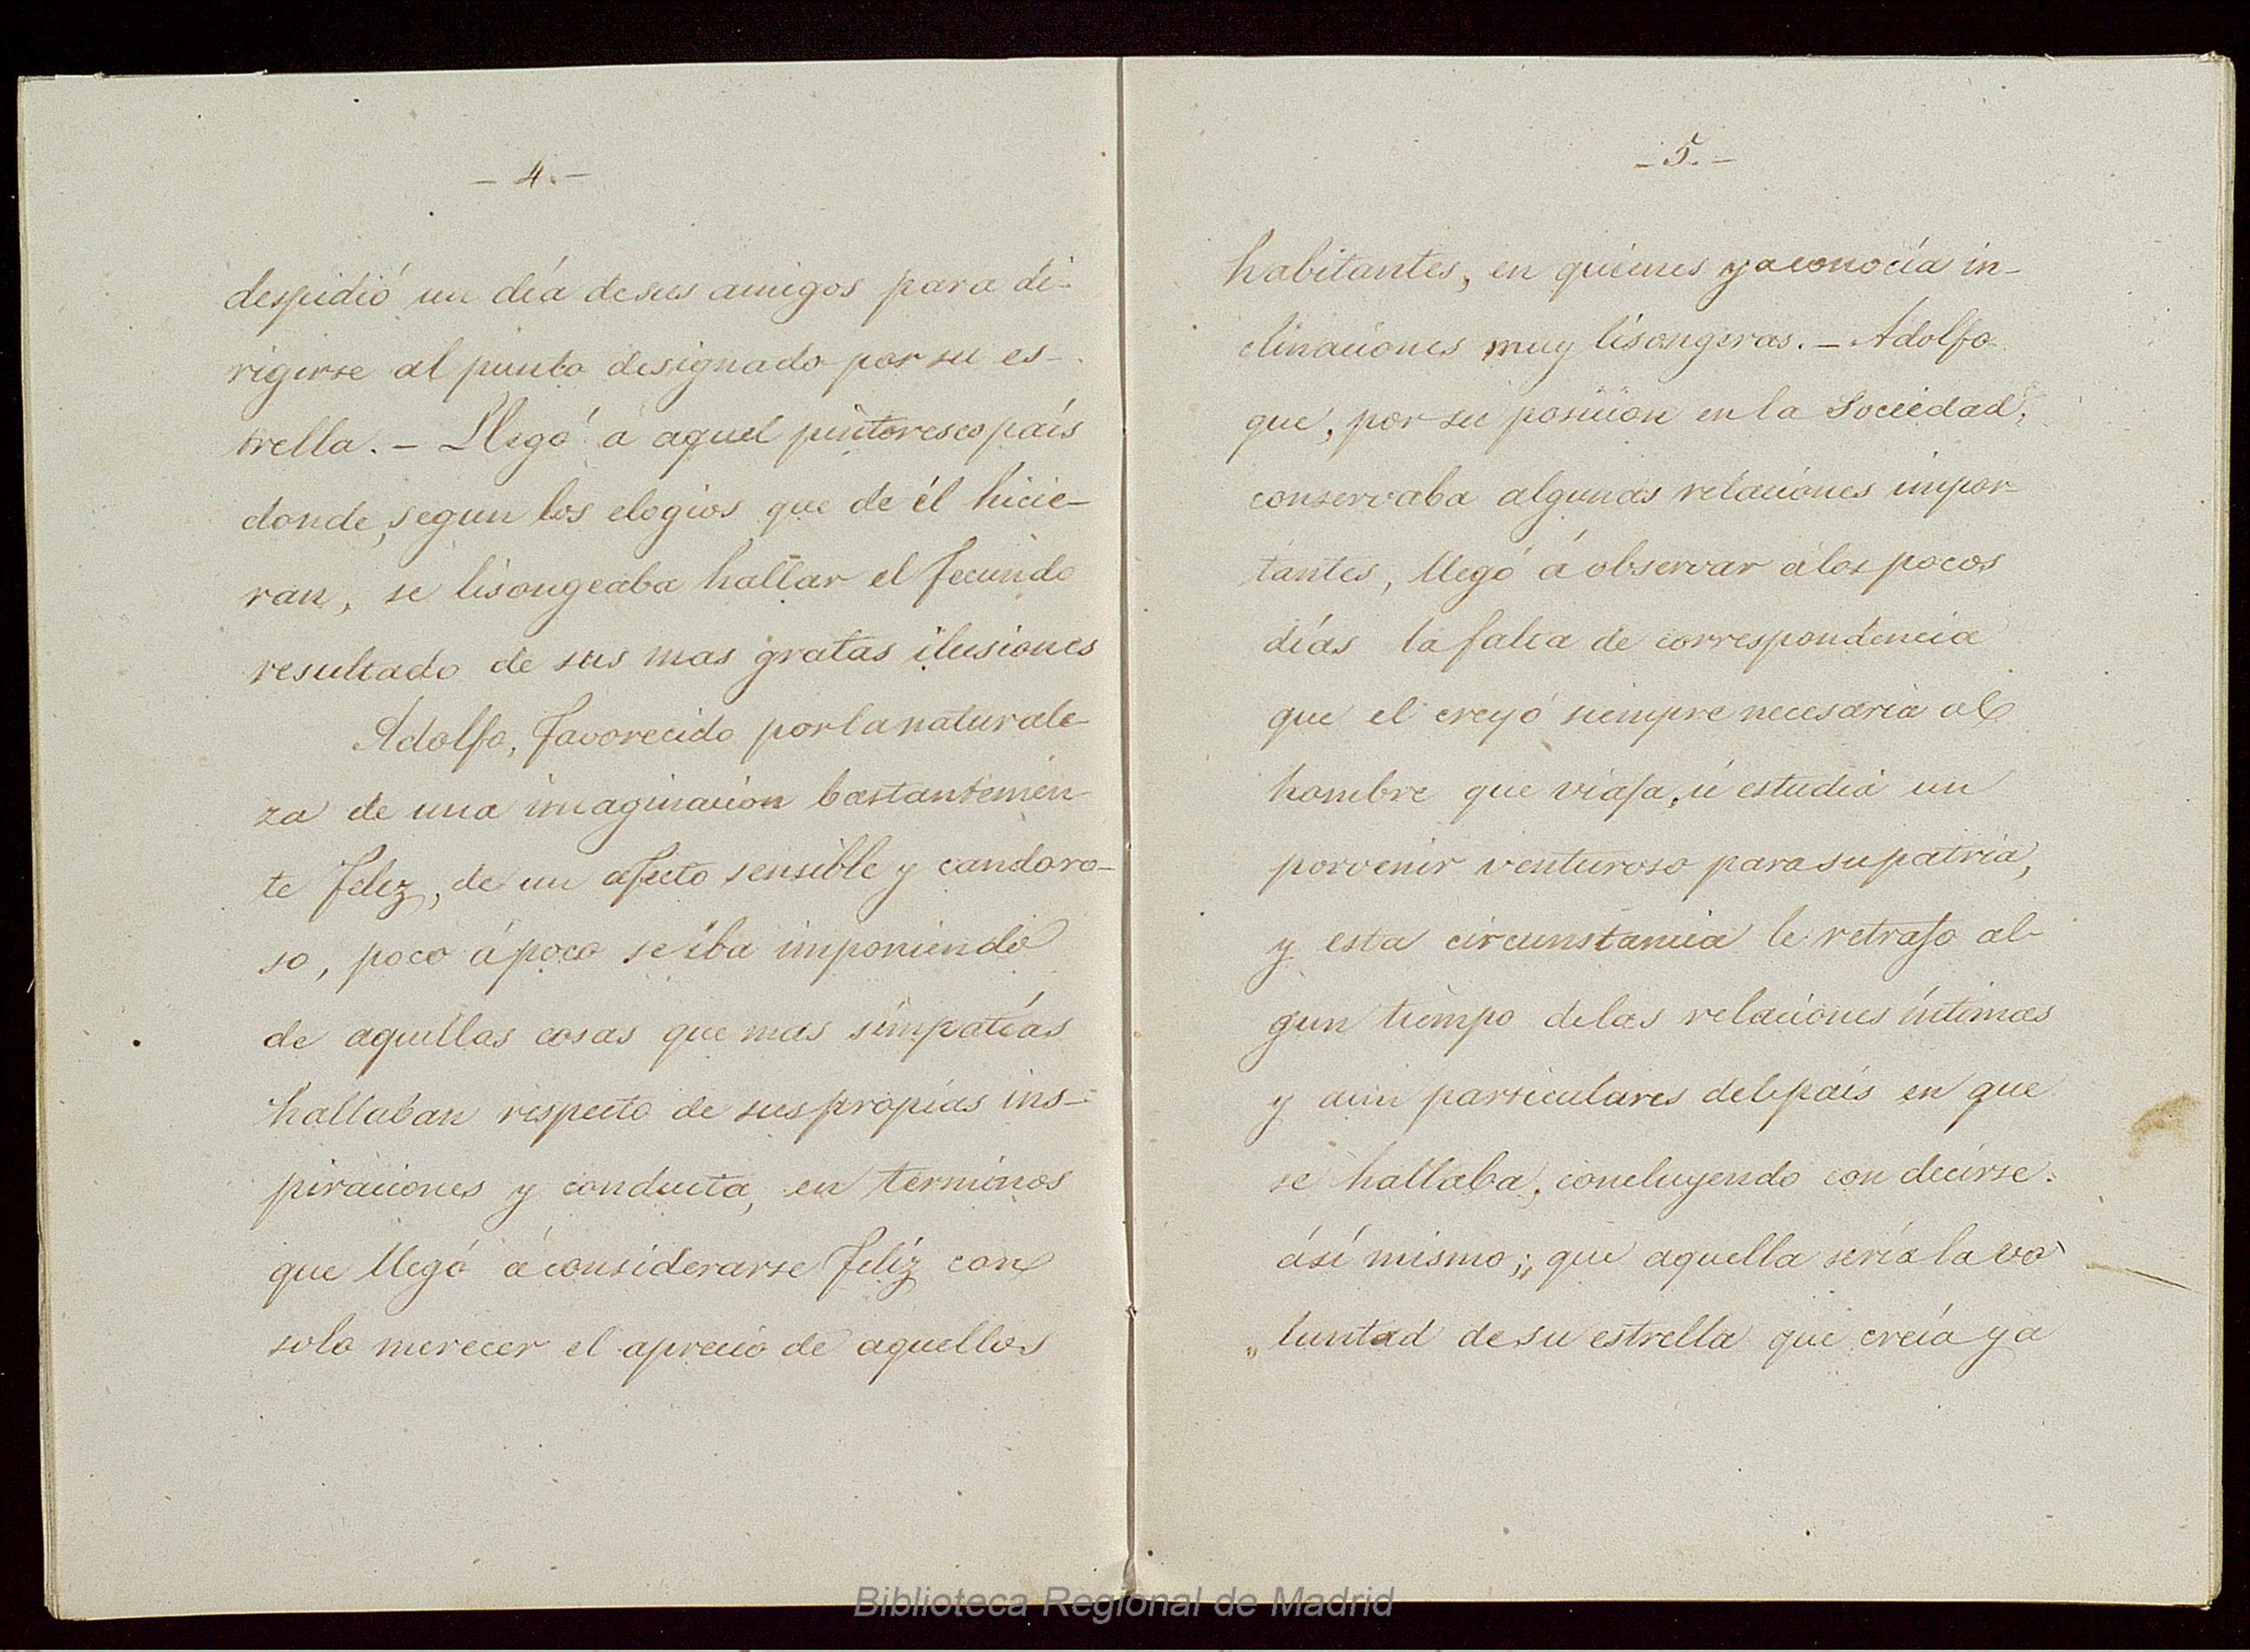 - 4. -
despidió un día de sus amigos para di-
rigirse al punto designado por su es-
trella. - Llegó á aquel pintoresco país
donde, segun los elogios que de él hicie-
ran, se lisongeaba hallar el fecundo
resultado de sus mas gratas ilusiones
Adolfo, favorecido por la naturale-
za de una imaginación bastantemen-
te feliz, de un afecto sensible y candoro-
so, poco á poco se iba imponiendo
de aquellas cosas que mas simpatías
hallaban respecto de sus propias ins-
piraciones y conducta, en terminos
que llegó á considerarse feliz con
solo merecer el aprecio de aquellos
- 5. -
habitantes, en quienes ya conocía in-
clinaciones muy lisongeras. - Adolfo
que, por su posicion en la Sociedad,
conservaba algunas relaciones impor-
tantes, llegó á observar á los pocos
días la falta de correspondencia
que el creyó siempre necesaria al
hombre que viaja, ú estudia un
porvenir venturoso para su patria,
y esta circunstancia le retrajo al-
gun tiempo de las relaciones íntimas
y aun particulares del país en que
se hallaba, concluyendo con decirse
á sí mismo; „que aquella sería la vo-
„luntad de su estrella que creía ya
Biblioteca Regional de Madrid